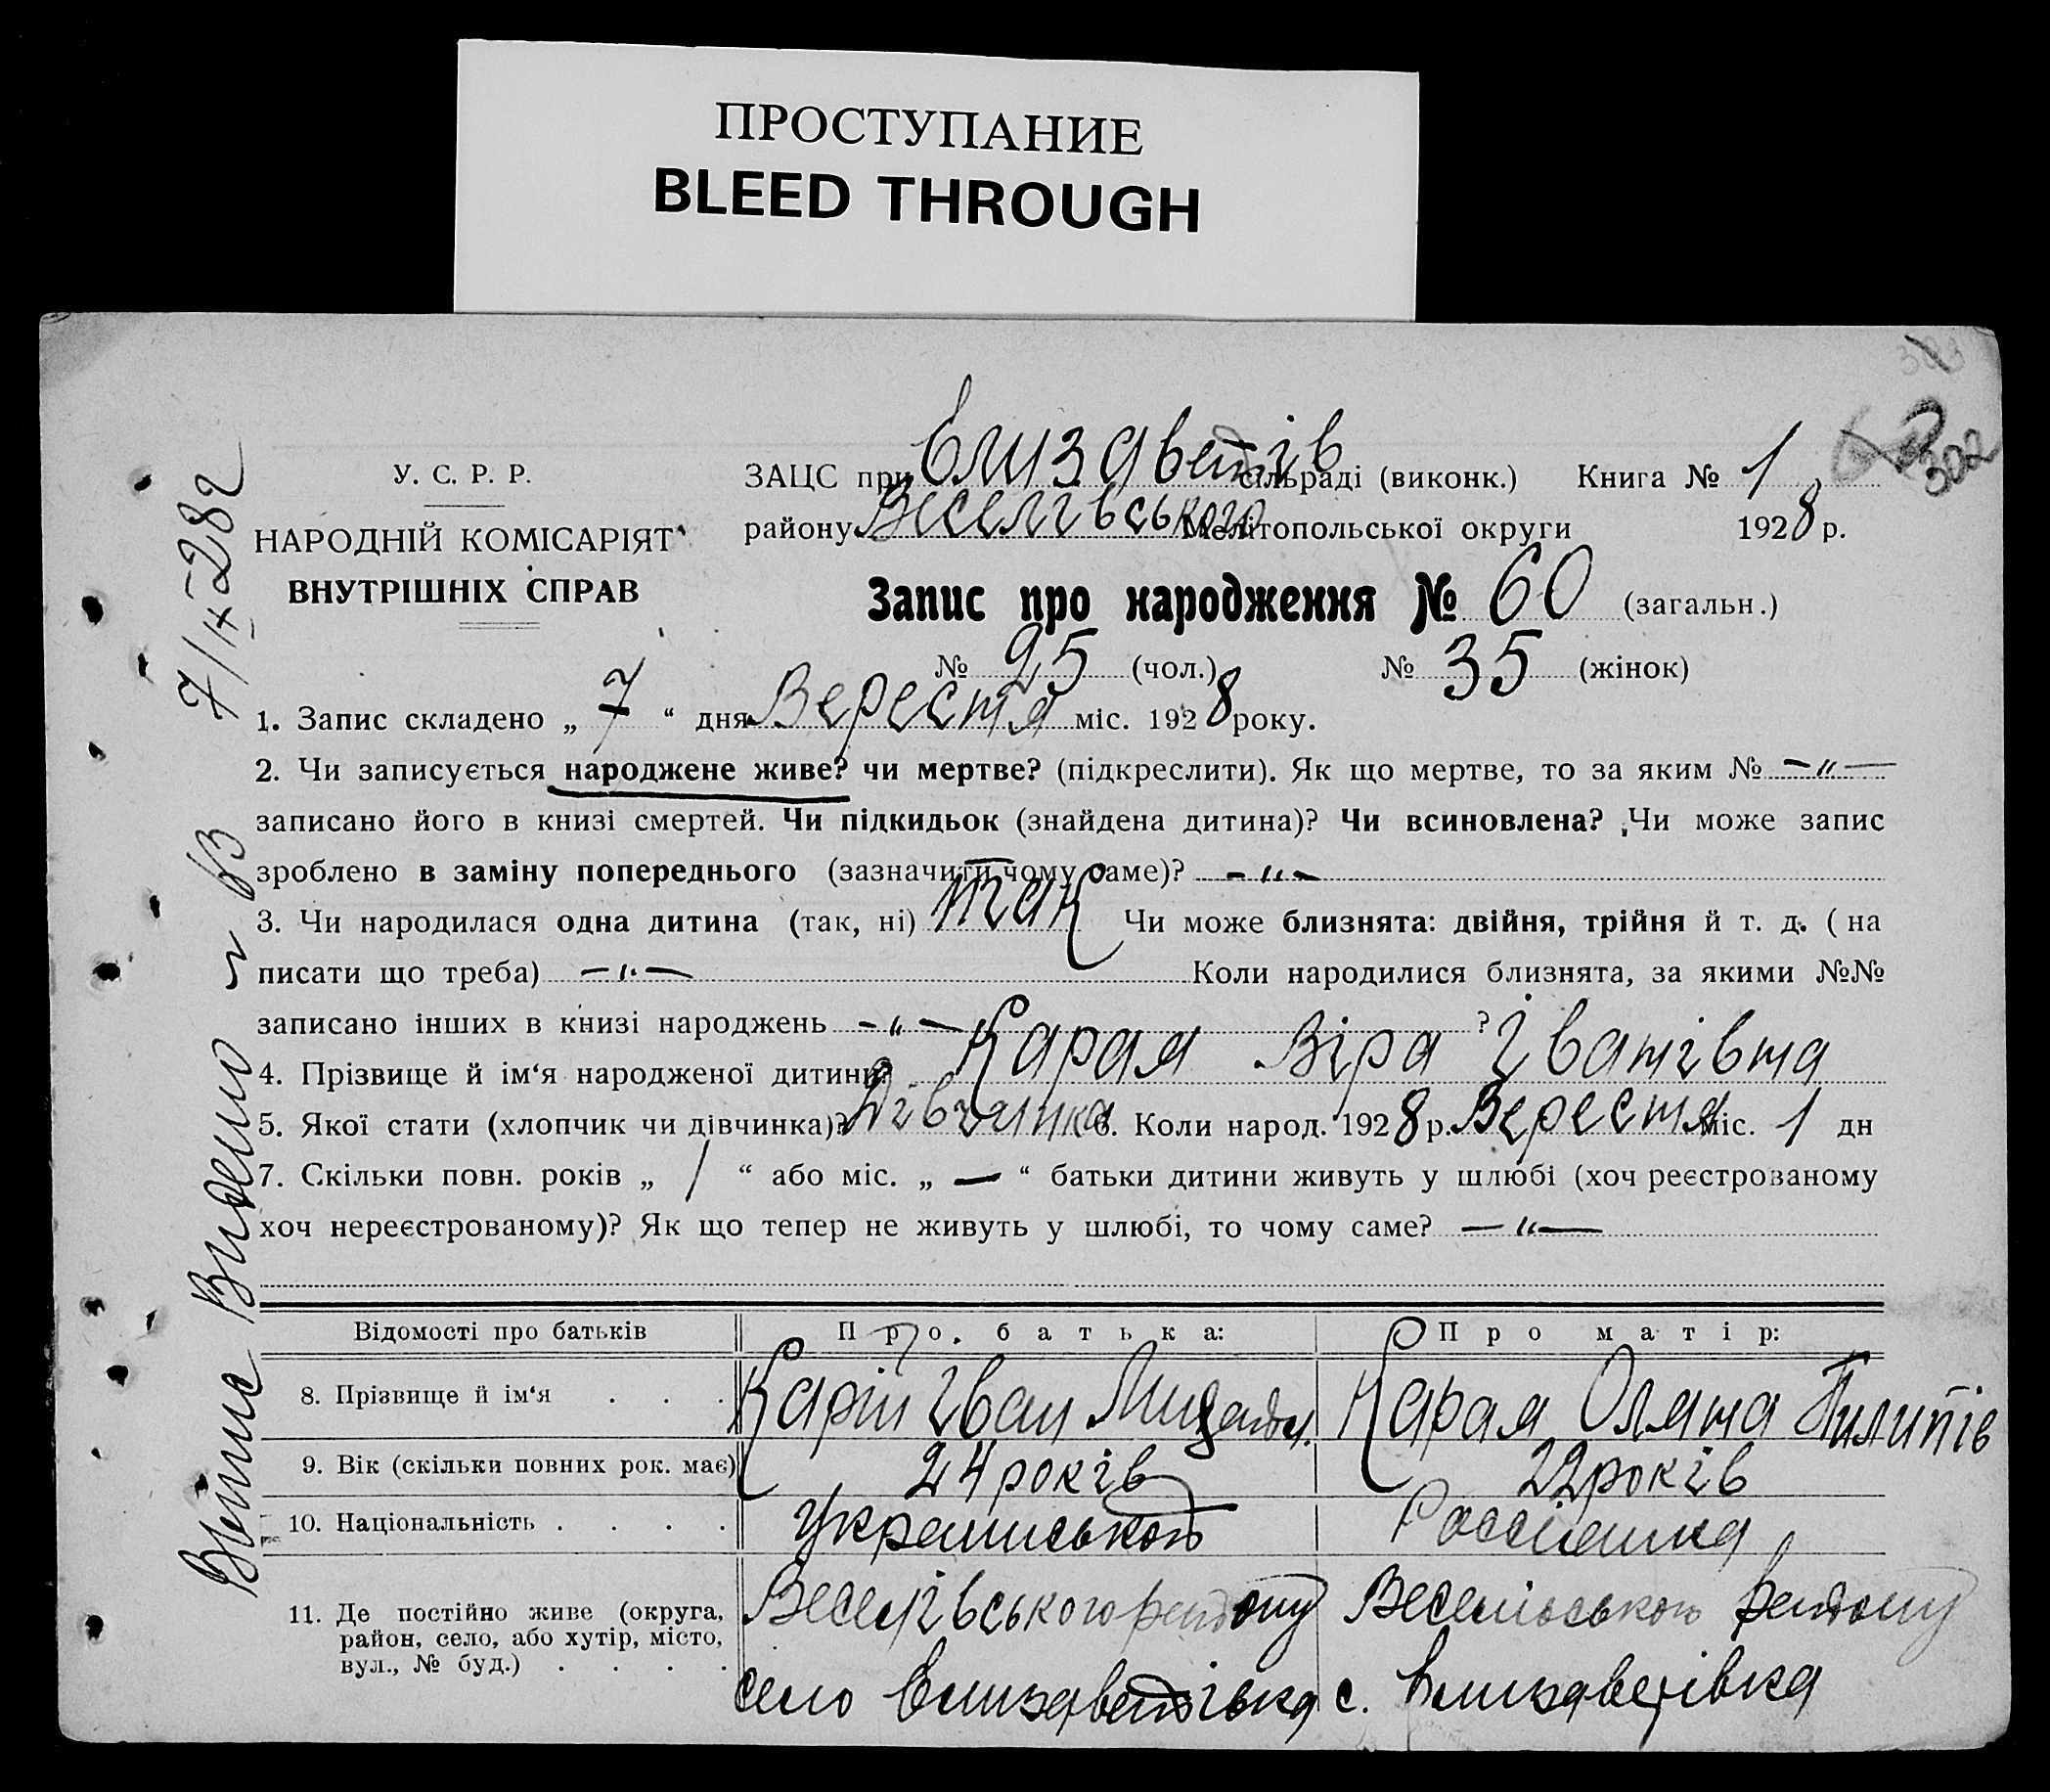 ПРОСТУПАНИЕ
BLEED THROUGH
302
У. С. Р. Р.
НАРОДНІЙ КОМІСАРІЯТ
ВНУТРІШНІХ СПРАВ
ЗАЦС при Єлизаветів сільраді (виконк.) Книга № 1
району Веселівського Мелітопольської округи 1928 р.
Запис про народження № 60 (загальн.)
№ 25 (чол.) № 35 (жінок)
1. Запис складено „ 7 “ дня Вересня міс. 1928 року.
2. Чи записується народжене живе? чи мертве? (підкреслити). Як що мертве, то за яким № — „ —
записано його в книзі смертей. Чи підкидьок (знайдена дитина)? Чи всиновлена? Чи може запис
зроблено в заміну попереднього (зазначити чому саме)? — „ —
3. Чи народилася одна дитина (так, ні) так Чи може близнята: двійня, трійня й т. д. ( на
писати що треба) — „ — Коли народилися близнята, за якими №№
записано інших в книзі народжень — „ — ?
4. Прізвище й ім‘я народженої дитини? Карая Віра Іванівна
5. Якої стати (хлопчик чи дівчинка)? Дівчинка 6. Коли народ. 1928 р. Вересня міс. 1 дн
7. Скільки повн. років „ 1 “ або міс. „ — “ батьки дитини живуть у шлюбі (хоч реєстрованому
хоч нереєстрованому)? Як що тепер не живуть у шлюбі, то чому саме? — „ —
Відомості про батьків Про батька: Про матір:
8. Прізвище й ім‘я . . . Карий Іван Карая Оляна Пилипів
9. Вік (скільки повних рок. має) 24 років 22 років
10. Національність . . . . Россіянка
11. Де постійно живе (округа, район, село, або хутір, місто, вул., № буд.) . . . . Веселівського району Веселівського району
село Єлизаветівка с. Єлизаветівка
7/IX–28г
Видано